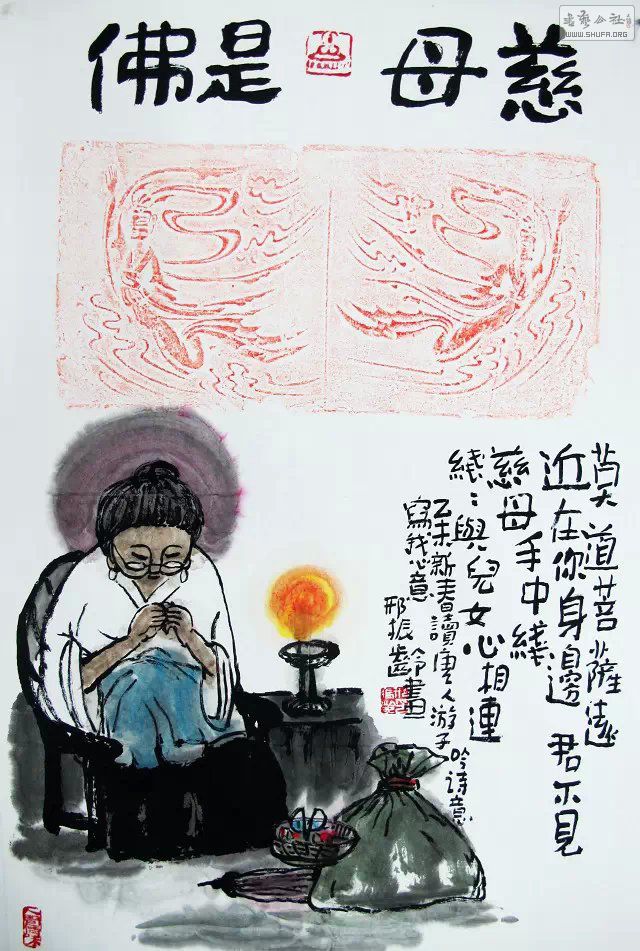 慈母是佛
莫道菩薩遠
近在你身邊 君不見
慈母手中綫
綫:與兒女心相連
乙未新春讀唐人游子吟詩意
寫我心意
邢振齡畫
书艺公社
WWW.SHUFA.ORG